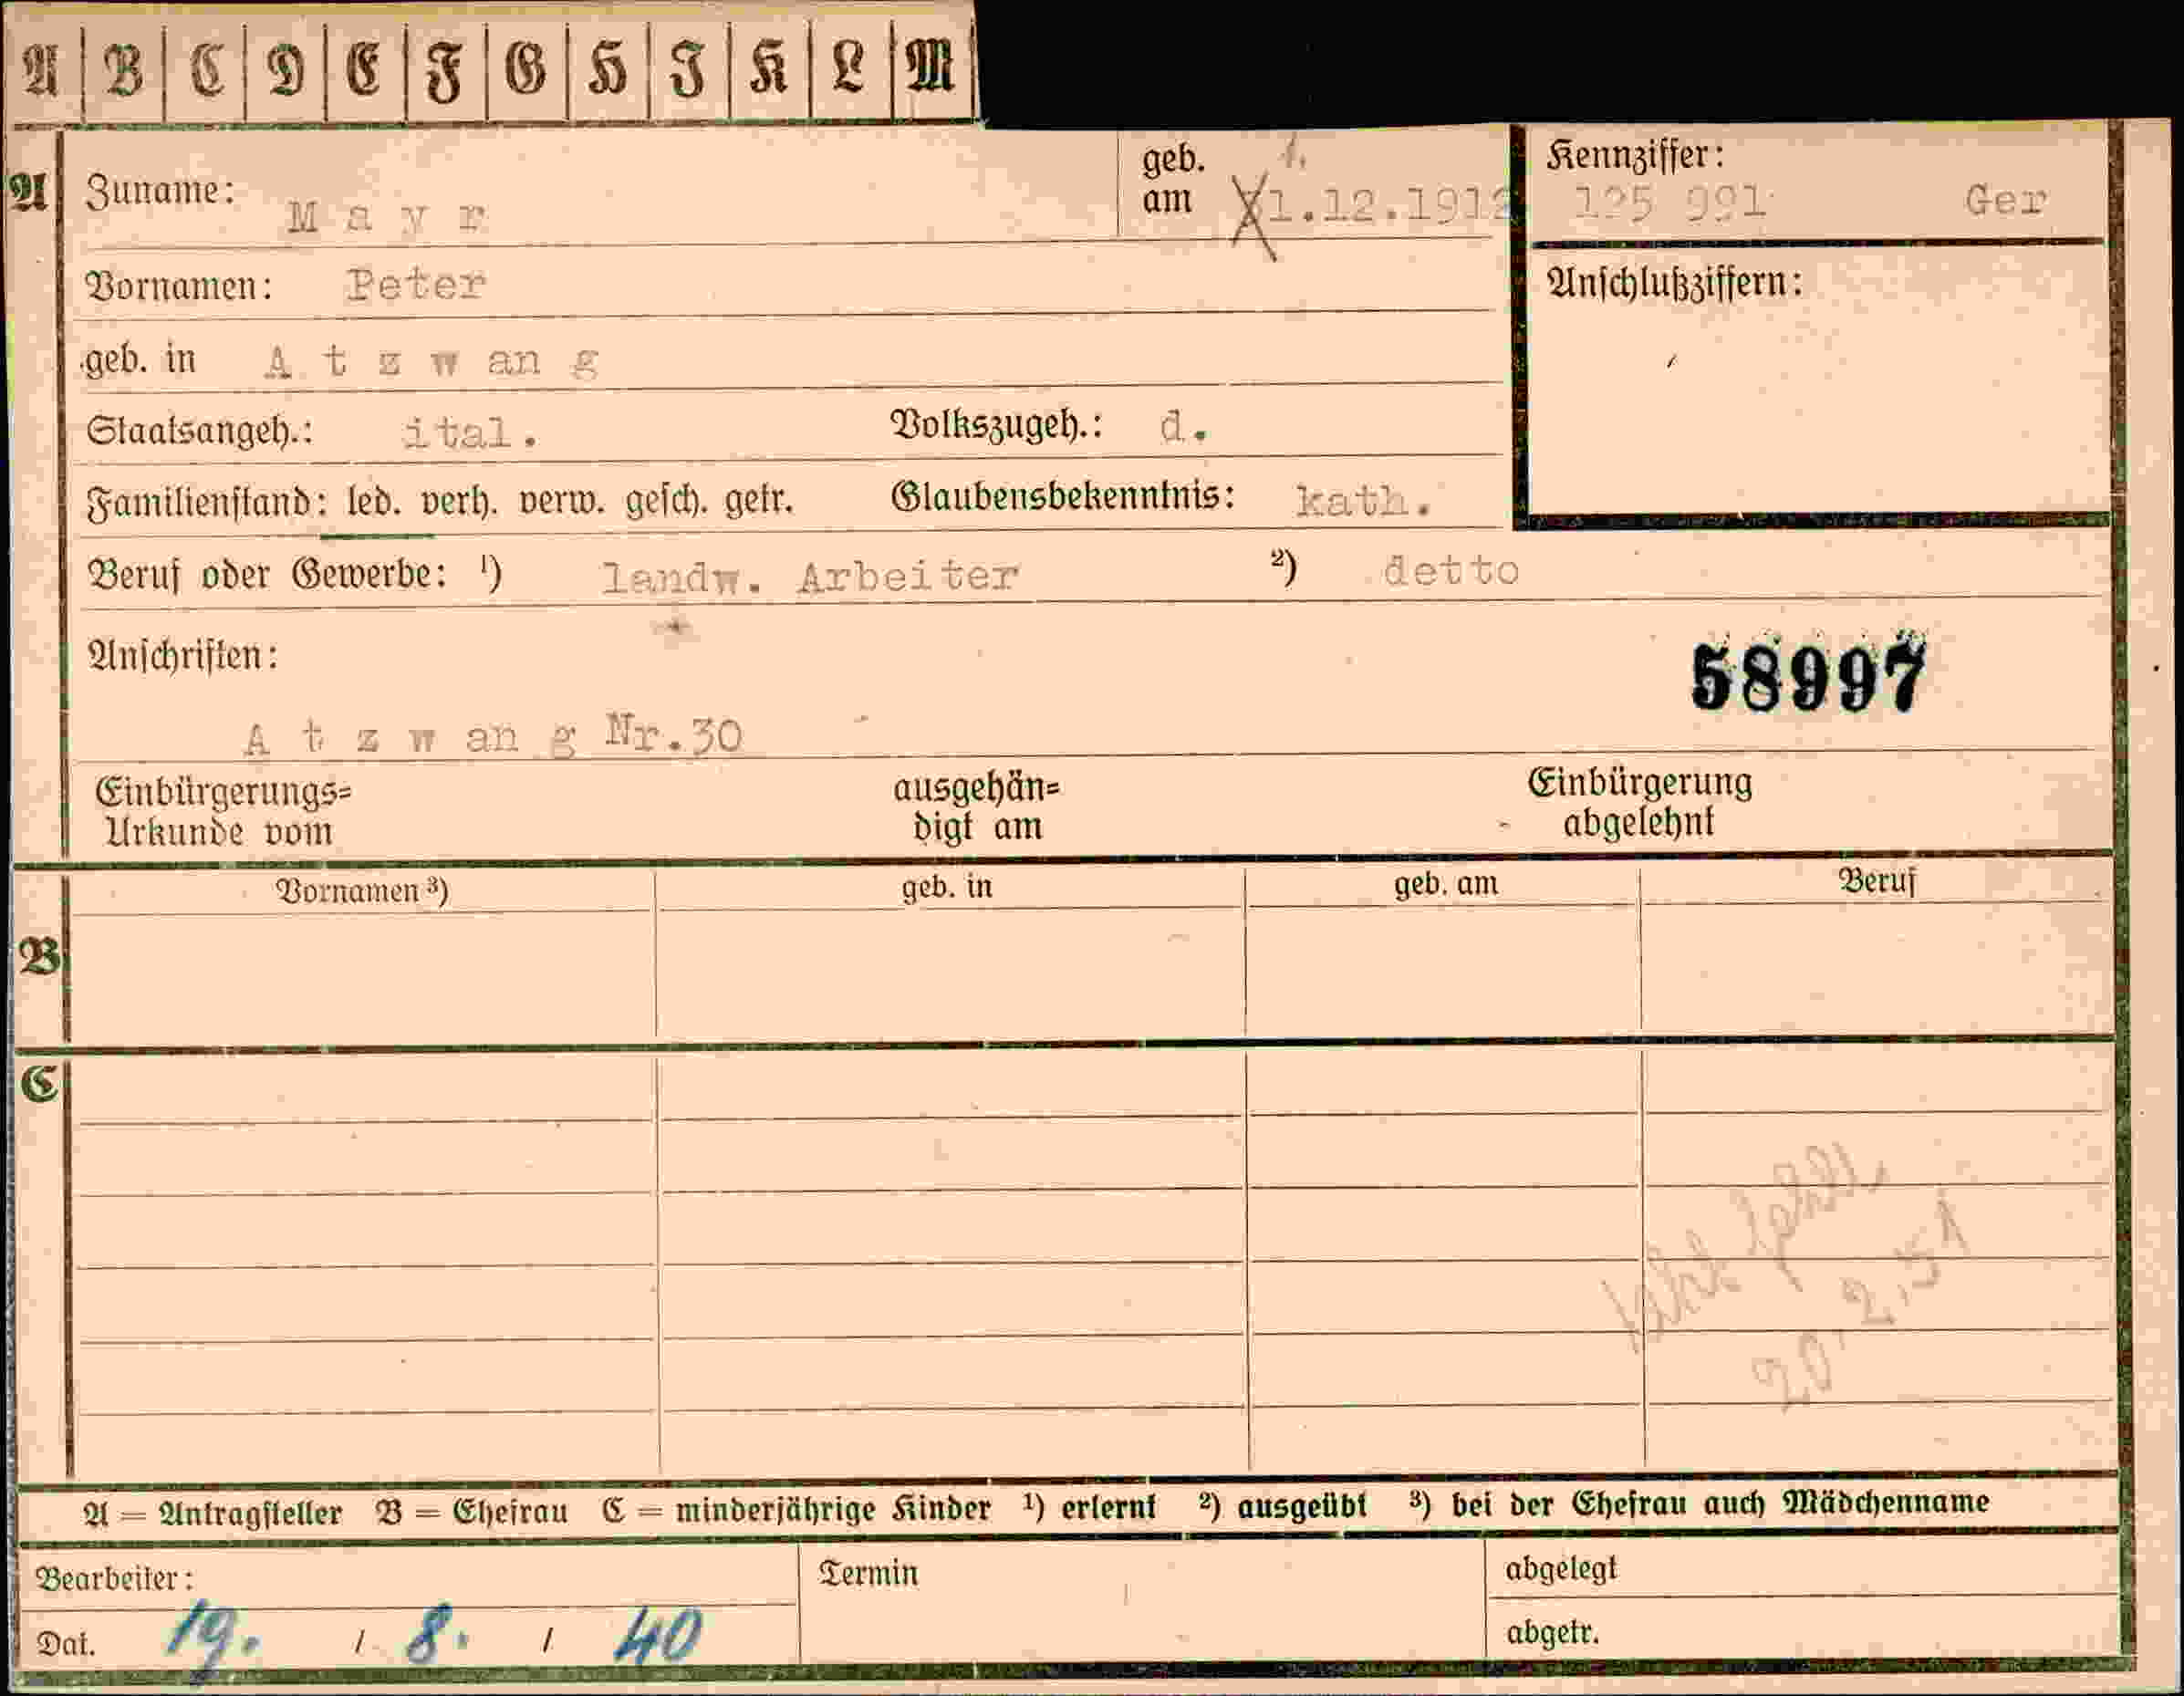 A B C D E F G H I K L M
A Zuname: Mayr geb. am 1. X1.12.1912 Kennziffer: 125 991 Ger
Vornamen: Peter Anschlußziffern:
geb. in Atzwang
Staatsangeh.: ital. Volkszugeh.: d.
Familienstand: led. verh. verw. gesch. getr. Glaubensbekenntnis: kath.
Beruf oder Gewerbe: ¹) landw. Arbeiter ²) detto
Anschriften: 58997
Atzwang Nr.30
Einbürgerungs= ausgehän= Einbürgerung
Urkunde vom digt am abgelehnt
Vornamen ³) geb. in geb. am Beruf
B
C
20. 2. 51
A = Antragsteller B = Ehefrau C = minderjährige Kinder ¹) erlernt ²) ausgeübt ³) bei der Ehefrau auch Mädchenname
Bearbeiter: Termin abgelegt
Dat. 19. / 8. / 40 abgetr.